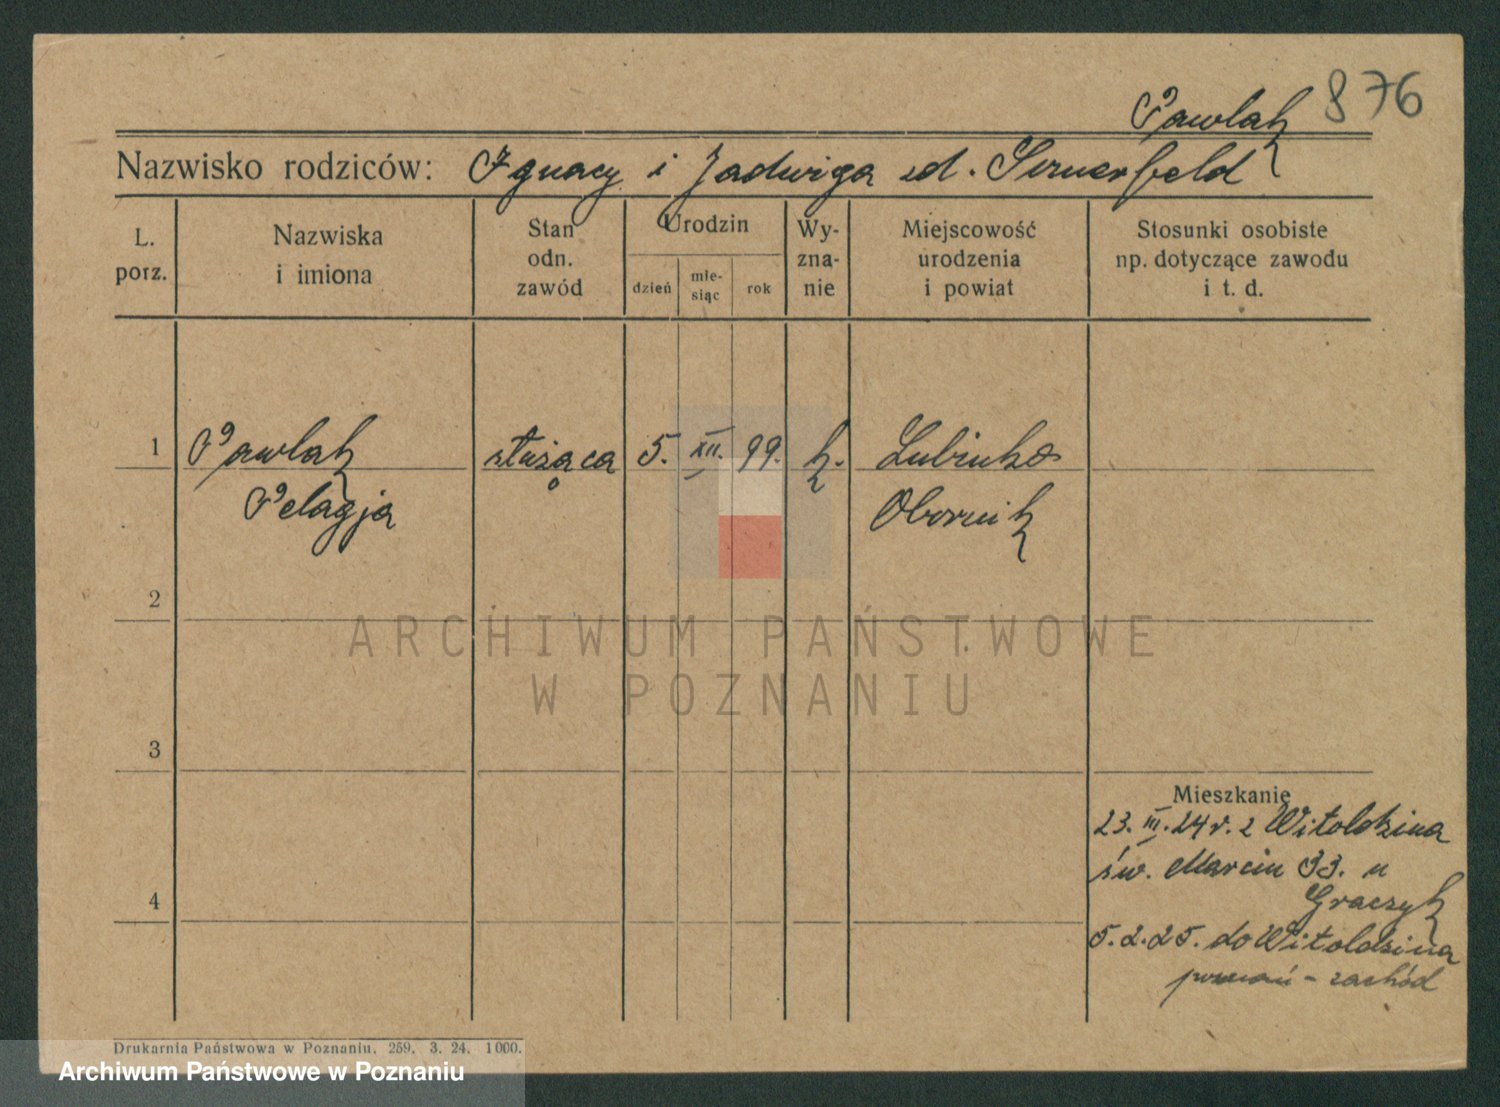 876
Pawlak
Nazwisko rodziców: Ignacy i Jadwiga zd.
L. porz.
Nazwiska i imiona
Stan odn. zawód
Urodzin
dzień
mie-siąc
rok
Wy-zna-nie
Miejscowość urodzenia i powiat
Stosunki osobiste np. dotyczące zawodu i t. d.
1 Pawlak służąca 5. XII. 99. k. Lubinko
Pelagja Obornik
2
ARCHIWUM PAŃSTWOWE
W POZNANIU
3
Mieszkanie
23. III. 24 r. z Witoldzina
św. Marcin 33. u
Graczyk
4
5. 2. 25. do Witoldzina
poznań - zachód
Drukarnia Państwowa w Poznaniu, 259. 3. 24. 1000.
Archiwum Państwowe w Poznaniu